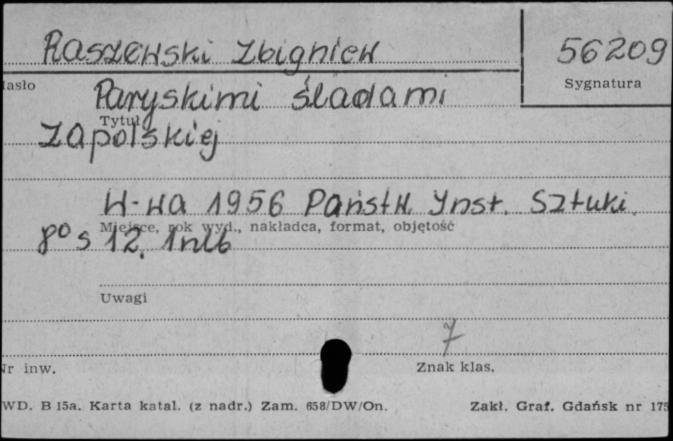 Raszewski Zbigniew
56209
Hasło
Sygnatura
Paryskimi śladami
Tytuł
Zapolskiej
W-wa 1956 Państw. Inst. Sztuki.
Miejsce, rok wyd., nakładca, format, objętość
8° s 12. 1nlb
Uwagi
7
Nr inw.
Znak klas.
WD. B 15a. Karta katal. (z nadr.) Zam. 658/DW/On.
Zakł. Graf. Gdańsk nr 175